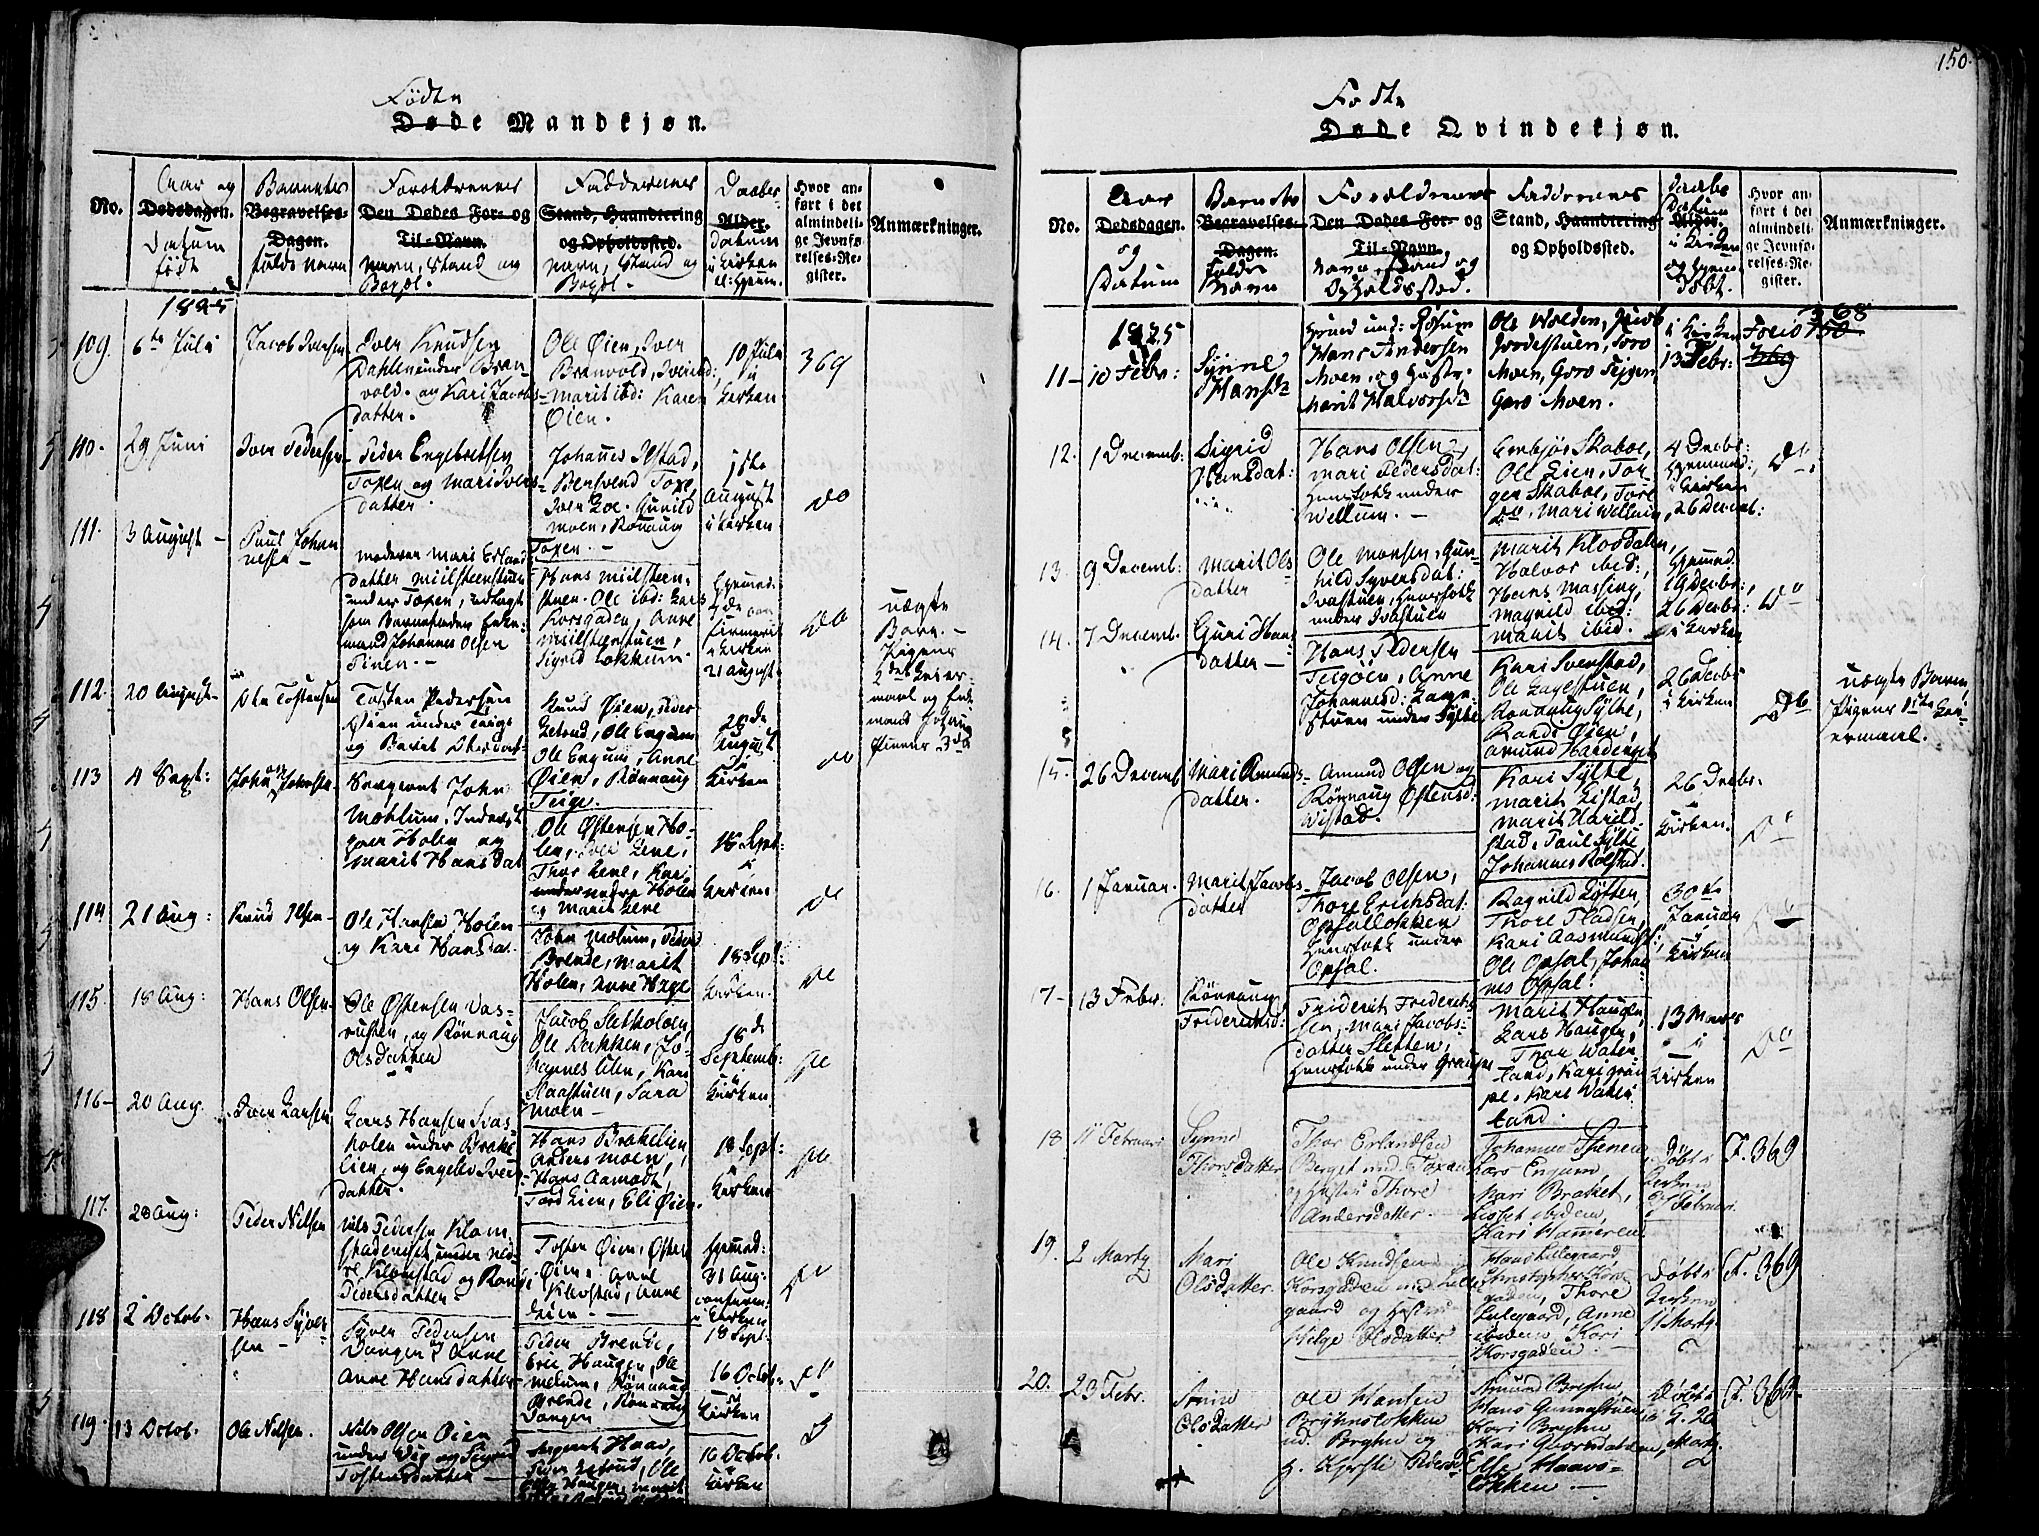 150.
Fødte
Døde Mandkjøn.
No.
Aar og
Dødsdagen.
Datum
født
Barnets
Begravelses-
Dagen.
fulde Navn
Forældrenes
Den Dødes For- og
Til-Navn.
Navn, Stand og
Bopæl.
Faddernes
Stand, Haandtering
og Opholdssted.
Navn, Stand og
Bopæl.
Daabs-
Alder.
Datum
i Kirken
el: Hjem.
Hvor an-
ført i det
almindeli-
ge Jevnfø-
relses-Re-
gister.
Anmærkninger.
1825
109.
6te Juli
Jacob Iversen
Iver Knudsen
Dahlen under Bran-
vold. og Kari Jacobs-
datter.
Ole Øien, Iver
Branvold,
Marit ibid: Karen
Øien.
10 Juli
i
Kirken
369
110.
29 Juni
Iver Pedersen
Peder Engebretsen
Toxen og Mari Ivers-
datter.
Johannes Ilstad,
Bentvend Toxe,
Iver Loe. Gunild
Moen, Rønnaug
Toxen. -
1ste
August
i Kirken
do
111.
3 August -
Paul Johan
nesen -
Moderen Mari Erlands
datter Miilsteenstuen
under Toxen, udlagt
som Barnefader Enke-
mand Johannes Olsen
Tinen. -
Hans Miilsteen-
stuen. Ole ibid: Lars
Korsgaden, Anne
Miilsteenstuen,
Sigrid Løkkum. -
Hjemmed:
7de
i Kirken
21 August
do
Uægte
Barn. -
Pigens
2det Leier-
maal og Enke-
mand
112.
20 August -
Ole Tostensen
Tosten Pedersen
Øien under Teige
og Barit Olsdat -
Knud Øien, Peder
Zetrud, Ole Engum
Ole Engum, Anne
Øien, Rønnaug
Teige.
28de
August
i
Kirken
do
113
4 Sept:
John Johnsen
Sergeant John
Mæhlum, Inderst
paa Holen og
Marit Hansdat
Ole Østensen Ho-
len, Iver Lene,
Thor Lene, Kari
under nedre Holen
og Marit Lene
18 Sept:
i
Kirken
do
114
21 Aug:
Knud Olsen -
Ole Hansen Holen
og Kari Hansdat.
John Mælum, Peder
Brende, Marit
Holen, Anne Hage
18 Sept:
i
Kirken.
do
115.
18 Aug:
Hans Olsen
Ole Østensen Vas-
rusten, og Rønnaug
Olsdatter
Jacob Sletholen,
Ole Bakken, Jo-
hannes Lien, Kari
Haastuen, Sara
Moen -
18de
Septemb:
i
Kirken
do
116 -
20 Aug.
Iver Larsen
Lars Hansen Svas-
holen under Brake
lien, og Engeb: Ivers-
datter.
Hans Brakelien
Anders Moen,
Hans Aamodt,
Tord Lien, Eli Øien.
18 Sept:
i
Kirken
do
117.
28 Aug:
Peder Nilsen
Nils Pedersen Klom-
stadeneset under ned-
re Klomstad og Rang:
Pedersdatter -
Tosten Øien, Østen
Øien, Anne
Klomstad, Anne
Lien -
Hjemmed:
31 Aug:
Kirken
18 Sept:
do
118
2 Octob.
Hans Syver-
sen -
Syver Pedersen
Vangen og Anne
Anne Hansdatter
Peder Brende,
Eric Haugen, Ole
Mælum, Rønnaug
Brende, Rønnaug
Vangen
16 Octob.
i
Kirken
do
119.
13 Octob.
Ole Nilsen.
Nils Olsen Øien
under Vig og Sigrid
Tostensdatter -
Sergeant Haav,
Peder Zetrud, Ole
Haugen, Marit
16 Octob.
i
Kirken
Fødte
Døde Qvindekjøn.
No.
Aar
Dødsdagen.
og
Datum
Barnets
Begravelses-
Dagen.
Fulde
Navn
Forældrenes
Den Dødes For- og
Til-Navn.
Navn, Stand og
Opholdssted.
Faddernes
Stand, Haandtering
og Opholdssted.
Daabs
Datum
Alder.
i Kirken
og Hjemme
Døbt.
Hvor an-
ført i det
almindeli-
ge Jevnfø-
relses-Re-
gister.
Anmærkninger.
1825
11 -
10 Febr:
Synne
Hansdr
Huusmd und: Rosum
Hans Andersen
Moen, og Hustr:
Marit Halvorsdr
Ole Wolden, Jacob
Jordestuen, Toro
Moen, Goro Teigen
Goro Moen.
i Kirken
13 Febr:
Folio 368
12.
1 Decemb:
Sigrid
Hansdat:
Hans Olsen,
Mari Pedersdat:
Huusfolk under
Wellum. -
Embjør Skaboe,
Ole Lien, Tor-
ger Skaboe, Tore
do, Mari Wellum,
4 Decbr:
Hjemmed:
i Kirken
26 Decemb:
do
13.
9 Decemb:
Marit Ols-
datter
Ole Monsen, Gun-
hild Syversdat:
Ivastuen, Huusfolk
under Ivastuen
Marit Klovdalen,
Halvor ibid:
Hans Massing,
Magnild ibid:
Marit ibid.
Hjemmed
19 Decbr:
26 Decbr:
i Kirken
do
14.
7 Decemb.
Guri Hans
datter -
Hans Pedersen
Teigøen, Anne
Johannesd: Lage-
stuen under Sylte
Kari Svenstad,
Ole Lagestuen,
Rønnaug Sylte,
Randi Øien,
Amund Hardengst
26 Decbr
i Kirken
do
Uægte Barn,
Pigens 1ste Lei-
ermaal.
15.
26 Decemb
Mari Amunds-
datter.
Amund Olsen og
Rønnaug Østensd:
Wistad.
Kari Sylte,
Marit Listad,
Marit Harild-
stad, Paul Sylte
Johannes Rolstad.
26 Decbr.
i
Kirken.
do
16.
1 Januar.
Marit Jacobs-
datter
Jacob Olsen,
Thore Erichsdat:
Opsalløkken
Huusfolk under
Opsal.
Ragnild Løften,
Thore Pladsen,
Kari Aasmundst:,
Ole Opsal, Johan
nes Opsal.
30te
Januar
i
Kirken
do
17 -
13 Febr:
Rønnaug
Friderichsd:
Friderik Friderich-
sen, Mari Jacobs-
datter Sletten,
Huusfolk under Graupe
Marit Haugen,
Lars Haugen,
Thor Waten-
land, Kari Grau-
pe, Kari Waten-
land.
13 Marts
i
Kirken
do
18
11 Februari
Synne
Thorsdatter
Thor Erlandsen
Berget und. Toxen
og Hustru Thore
Andersdatter.
Johannes Steneen
Lars Engum
Kari Braket,
Lisbet ibidem,
Kari Hameren
Døbt i
Kirken
Februar.
F. 369
19.
2 Martz
Mari
Olsdatter.
Ole Knudsen
Korsgaden und Lille-
gaard og Hustru
Helge Olsdatter
Hans Lillegaard,
Christopher Kors-
gaden, Thore
Lillegaard, Anne
ibidem, Kari
Korsgaden. -
Døbt i
Kirken
Martz
F. 369
20.
23 Febr.
Anne
Olsdatter
Ole Hansen
Bryhnsløkken
ud. Bryhn og
H. Kjersti Pedersd
Amund Bryhn,
Hans Gunnastuen
Kari Bryhn
Kari Qvernedalen,
Elle Haavs-
løkken. -
Døbt i
K. 20
Martz.
F. 369.